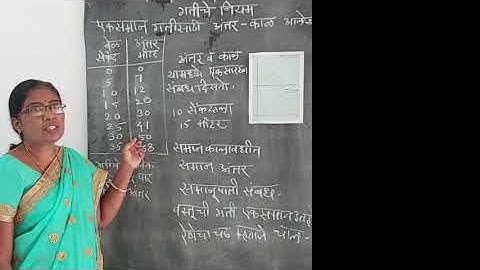 गतीचे नियम
एकसमान गतीसाठी अंतर - काल आलेख
वेळ अंतर
सेकंद मीटर
0 0
5 7
10 12
15 20
20 30
25 41
30 50
35 58
अंतर व काल
यामध्ये एकसारखा
संबंध दिसतो.
10 सेकंदाला
15 मीटर
समान कालावधीत
समान अंतर
समानुपाती संबंध.
वस्तूची गती एकसमान
रेषेचा चढ म्हणजे चाल -